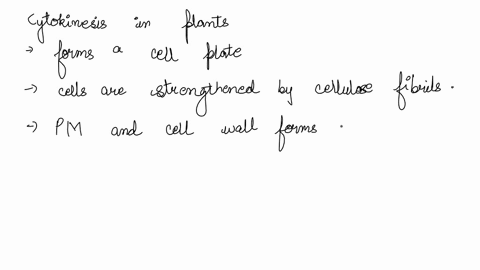 Cytokinesis in plants
→ forms a cell plate
→ cells are strengthened by cellulose fibrils.
→ PM and cell wall forms.